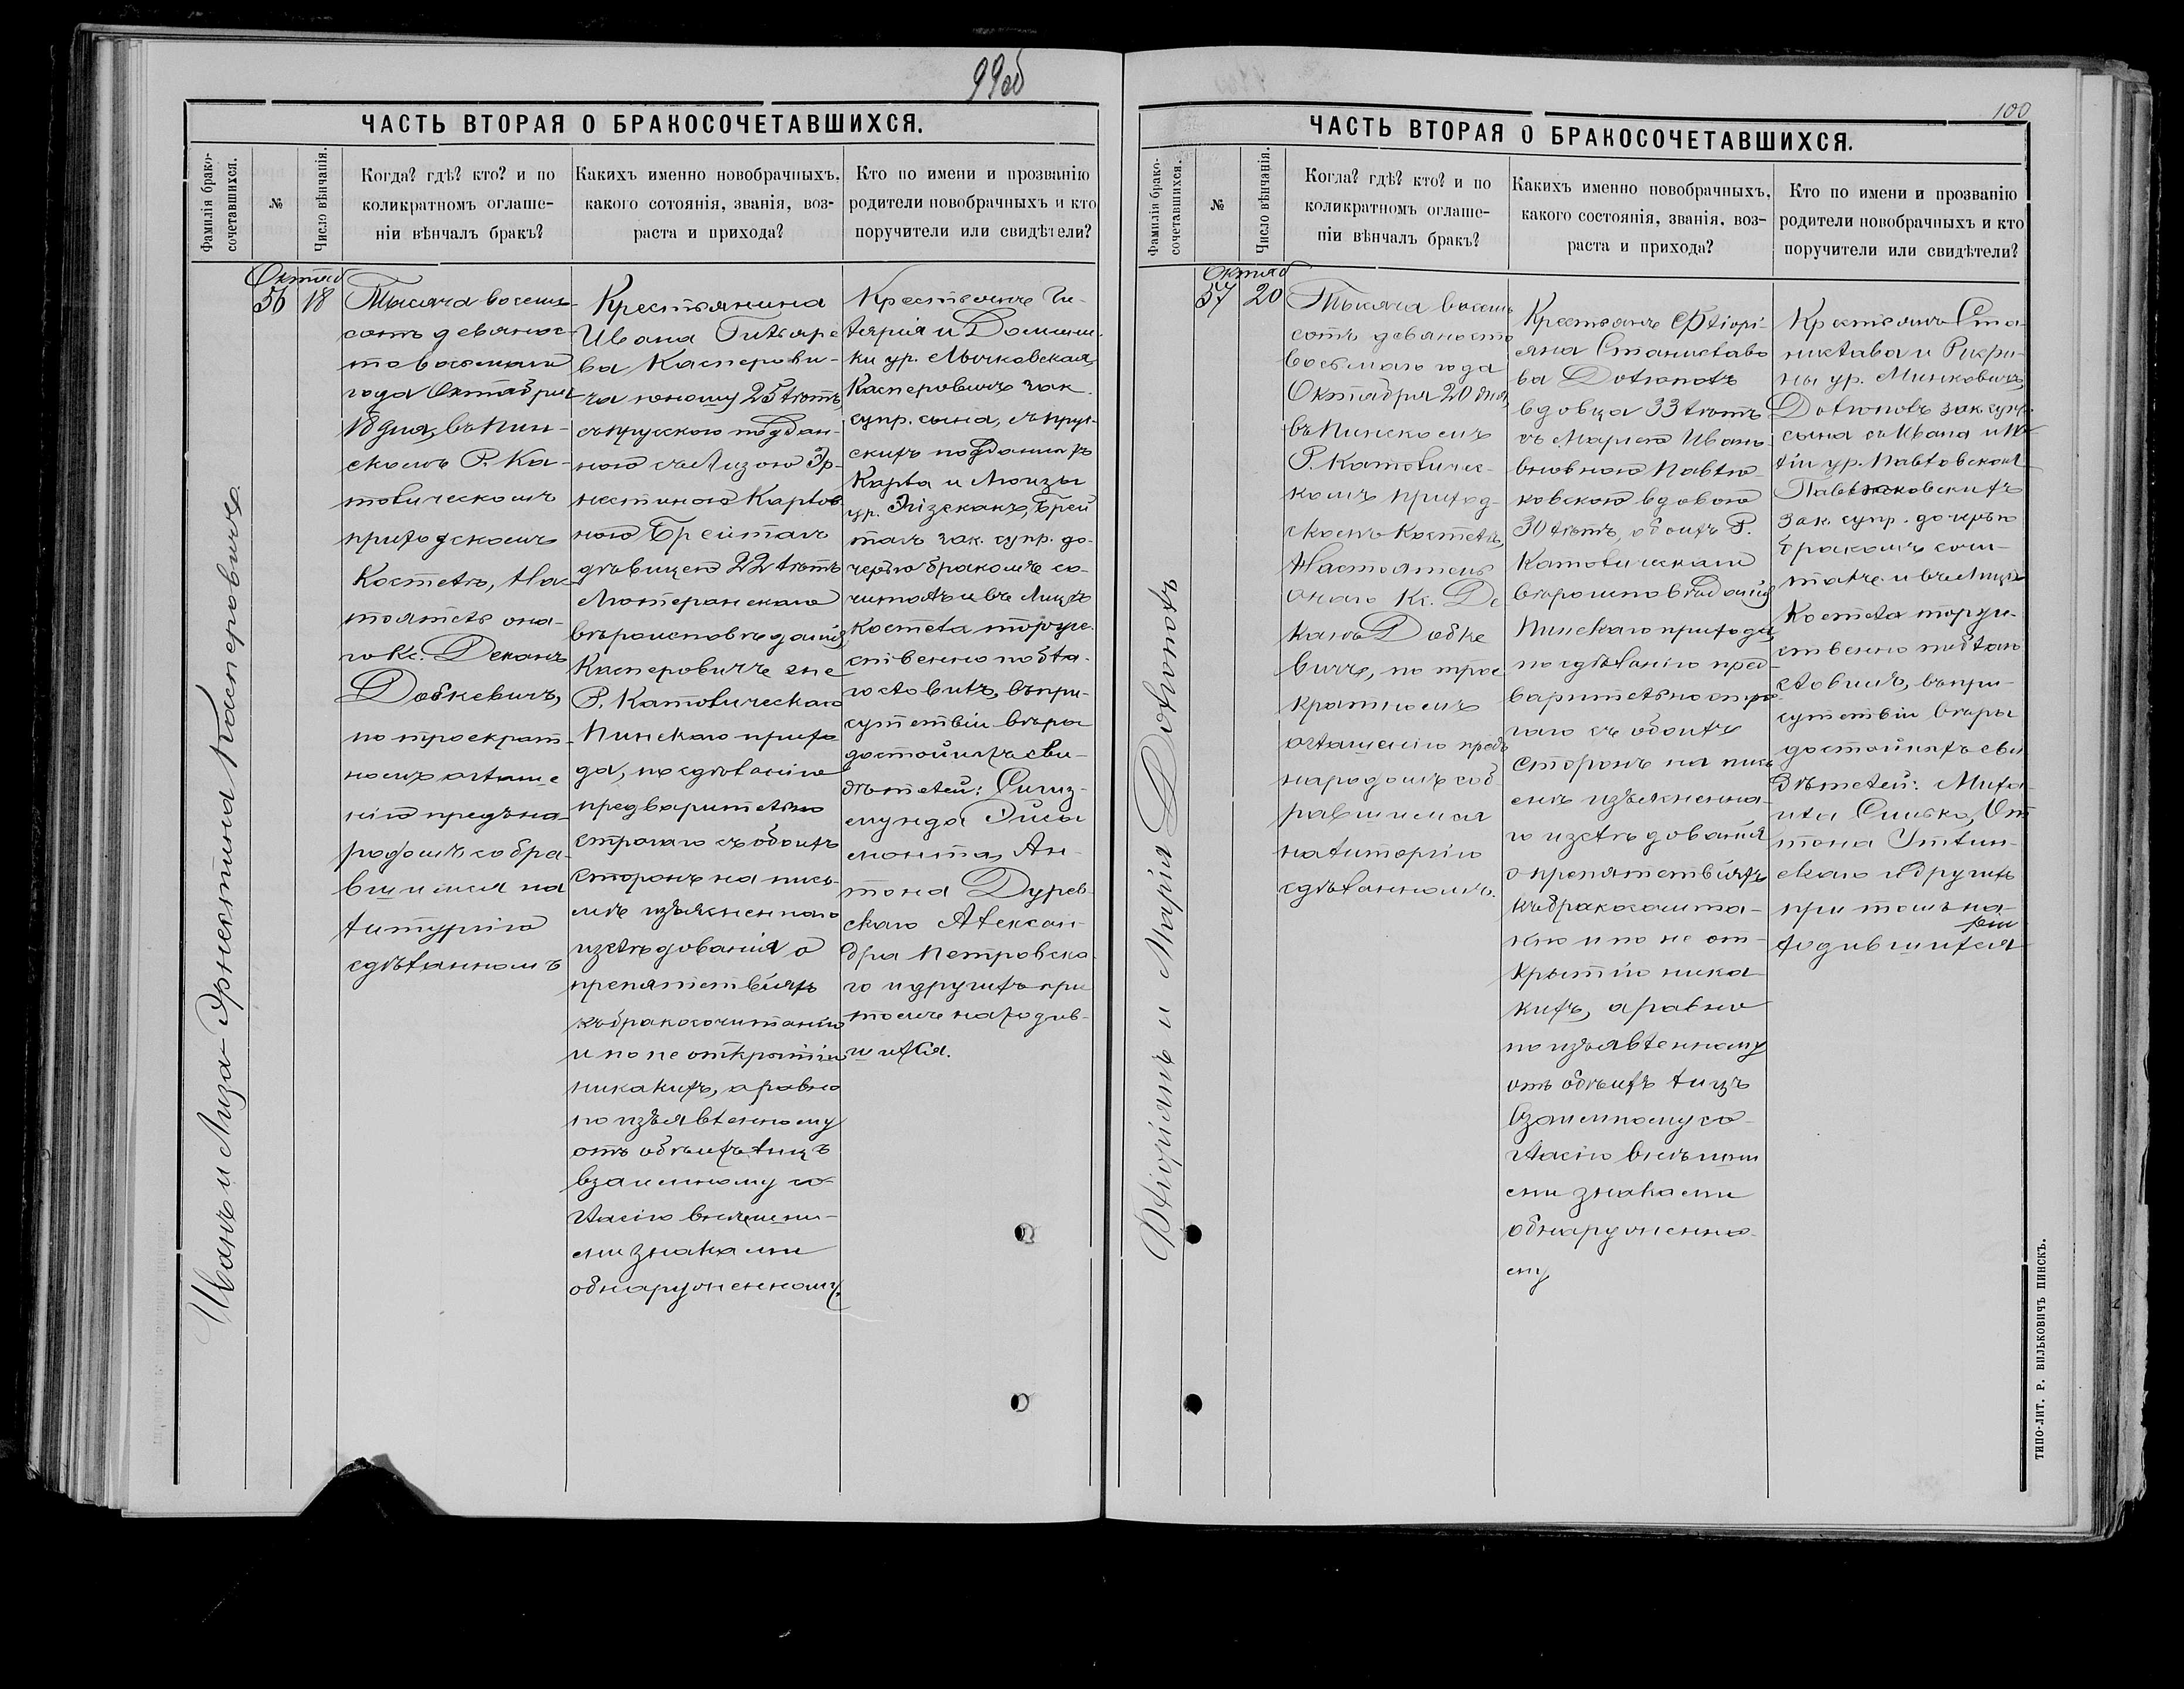 99об
ЧАСТЬ ВТОРАЯ О БРАКОСОЧЕТАВШИХСЯ.
Фамилія брако-
сочетавшихся.
№
Число вѣнчанія.
Когда? гдѣ? кто? и по
коликратномъ оглаше-
ніи вѣнчалъ бракъ?
Какихъ именно новобрачныхъ,
какого сотоянія, званія, воз-
раста и прихода?
Кто по имени и прозванію
родители новобрачныхъ и кто
поручители или свидѣтели?
Иванъ и Лиза-Эрнестина Касперовичъ.
Октяб
56
18
Тысяча восемь-
сотъ девянос-
то восьмаго
года Октября
18 дня, въ Пин-
скомъ Р. Ка-
толическомъ
приходскомъ
Костелѣ, На-
тоятель она-
го Кс. Деканъ
Добкевичъ,
по троекрат-
номъ оглаше
нію предъ на-
родомъ собра-
вшимся на
литургію
сдѣланномъ
Крестьянина
Ивана Гиляре
ва Касперови-
ча юношу 25 лѣтъ,
съ прускою поддан-
ною съ Лизою Эр-
нестиною Карлов
ною Брейталь
дѣвицею 22 лѣтъ
Лютеранскаго
вѣроисповѣданія,
Касперовичъ же
Р. Католическаго
Пинскаго прихо
да, по сдѣланію
предварительно
строгаго съ обоихъ
сторонъ на пись-
мѣ изъясненнаго
изслѣдованія о
препятствіяхъ
къ бракосочитанію
и по не открытіи
никакихъ, а равно
по изъявленному
отъ обѣихъ лицъ
взаимному со-
гласію внѣшни-
ми знаками
обнаруженному.
Крестьянъ Ги-
лярія и Домини-
ки ур. Мычковская,
Касперовичъ зак.
супр. сына, съ прус-
скихъ подданныхъ
Карла и Лоизы
ур. Гизеканъ, Брей
таль зак. супр. до-
черью бракомъ со-
читалъ и въ Лицѣ
Костела торже-
ственно побла-
гословилъ, въ при-
сутствіи вѣро
достойныхъ сви-
дѣтелей: Сигиз-
мунда
Ан-
тона Дурев-
скаго Алексан-
дра Петровска-
го и другихъ при
томъ находив-
шихся.
100
ЧАСТЬ ВТОРАЯ О БРАКОСОЧЕТАВШИХСЯ.
Фамилія брако-
сочетавшихся.
№
Число вѣнчанія.
Когда? гдѣ? кто? и по
коликратномъ оглаше-
ніи вѣнчалъ бракъ?
Какихъ именно новобрачныхъ,
какого состоянія, званія, воз-
раста и прихода?
Кто по имени и прозванію
родители новобрачныхъ и кто
поручители или свидѣтели?
Фліоріянъ и Марія Долюнолъ
Октяб
57
20
Тысяча восемь
сотъ девяносто
восьмаго года
Октября 20 дня,
въ Пинскомъ
Р. Католичес-
комъ приход-
скомъ Костелѣ,
Настоятель
онаго Кс. Де
канъ Добке
вичъ, по трое
кратномъ
оглашенію предъ
народомъ соб
равшимся
на литоргію
сдѣланномъ.
Крестьянъ Фліорі-
яна Станиславо
ва Долюнолъ
вдовца 33 лѣтъ
съ Марьею Ивано
вновною Павлю-
ковскою вдовою
30 лѣтъ, обоихъ Р.
Католическаго
вѣроисповѣданія
Пинскаго прихода,
по сдѣланію пред-
варительно стро
гаго съ обоихъ
сторонъ на пись
мѣ изъясненна-
го изслѣдованія
о препятствіяхъ
къ бракосочита-
нію и по не от-
крытію ника
кихъ, а равно
по изъявленному
отъ обѣихъ лицъ
взаимному со-
гласію внѣшни
ми знаками
обнаруженно-
му
Крестьянъ Ста-
нислава и
ны ур. Минковичъ,
зак. супр.
сына съ Ивана и
ур. Павловской
Павлюковскихъ
зак. супр. дочерью
бракомъ сочи-
талъ и въ Лицѣ
Костела торже-
ственно поблаго
словилъ, въ при-
сутствіи вѣро
достойныхъ сви
дѣтелей: Миха-
ила
скаго и другихъ
при томъ на-
ходившихся
ТИПО-ЛИТ. Р. ВИЛЬКОВИЧЪ ПИНСКЪ.